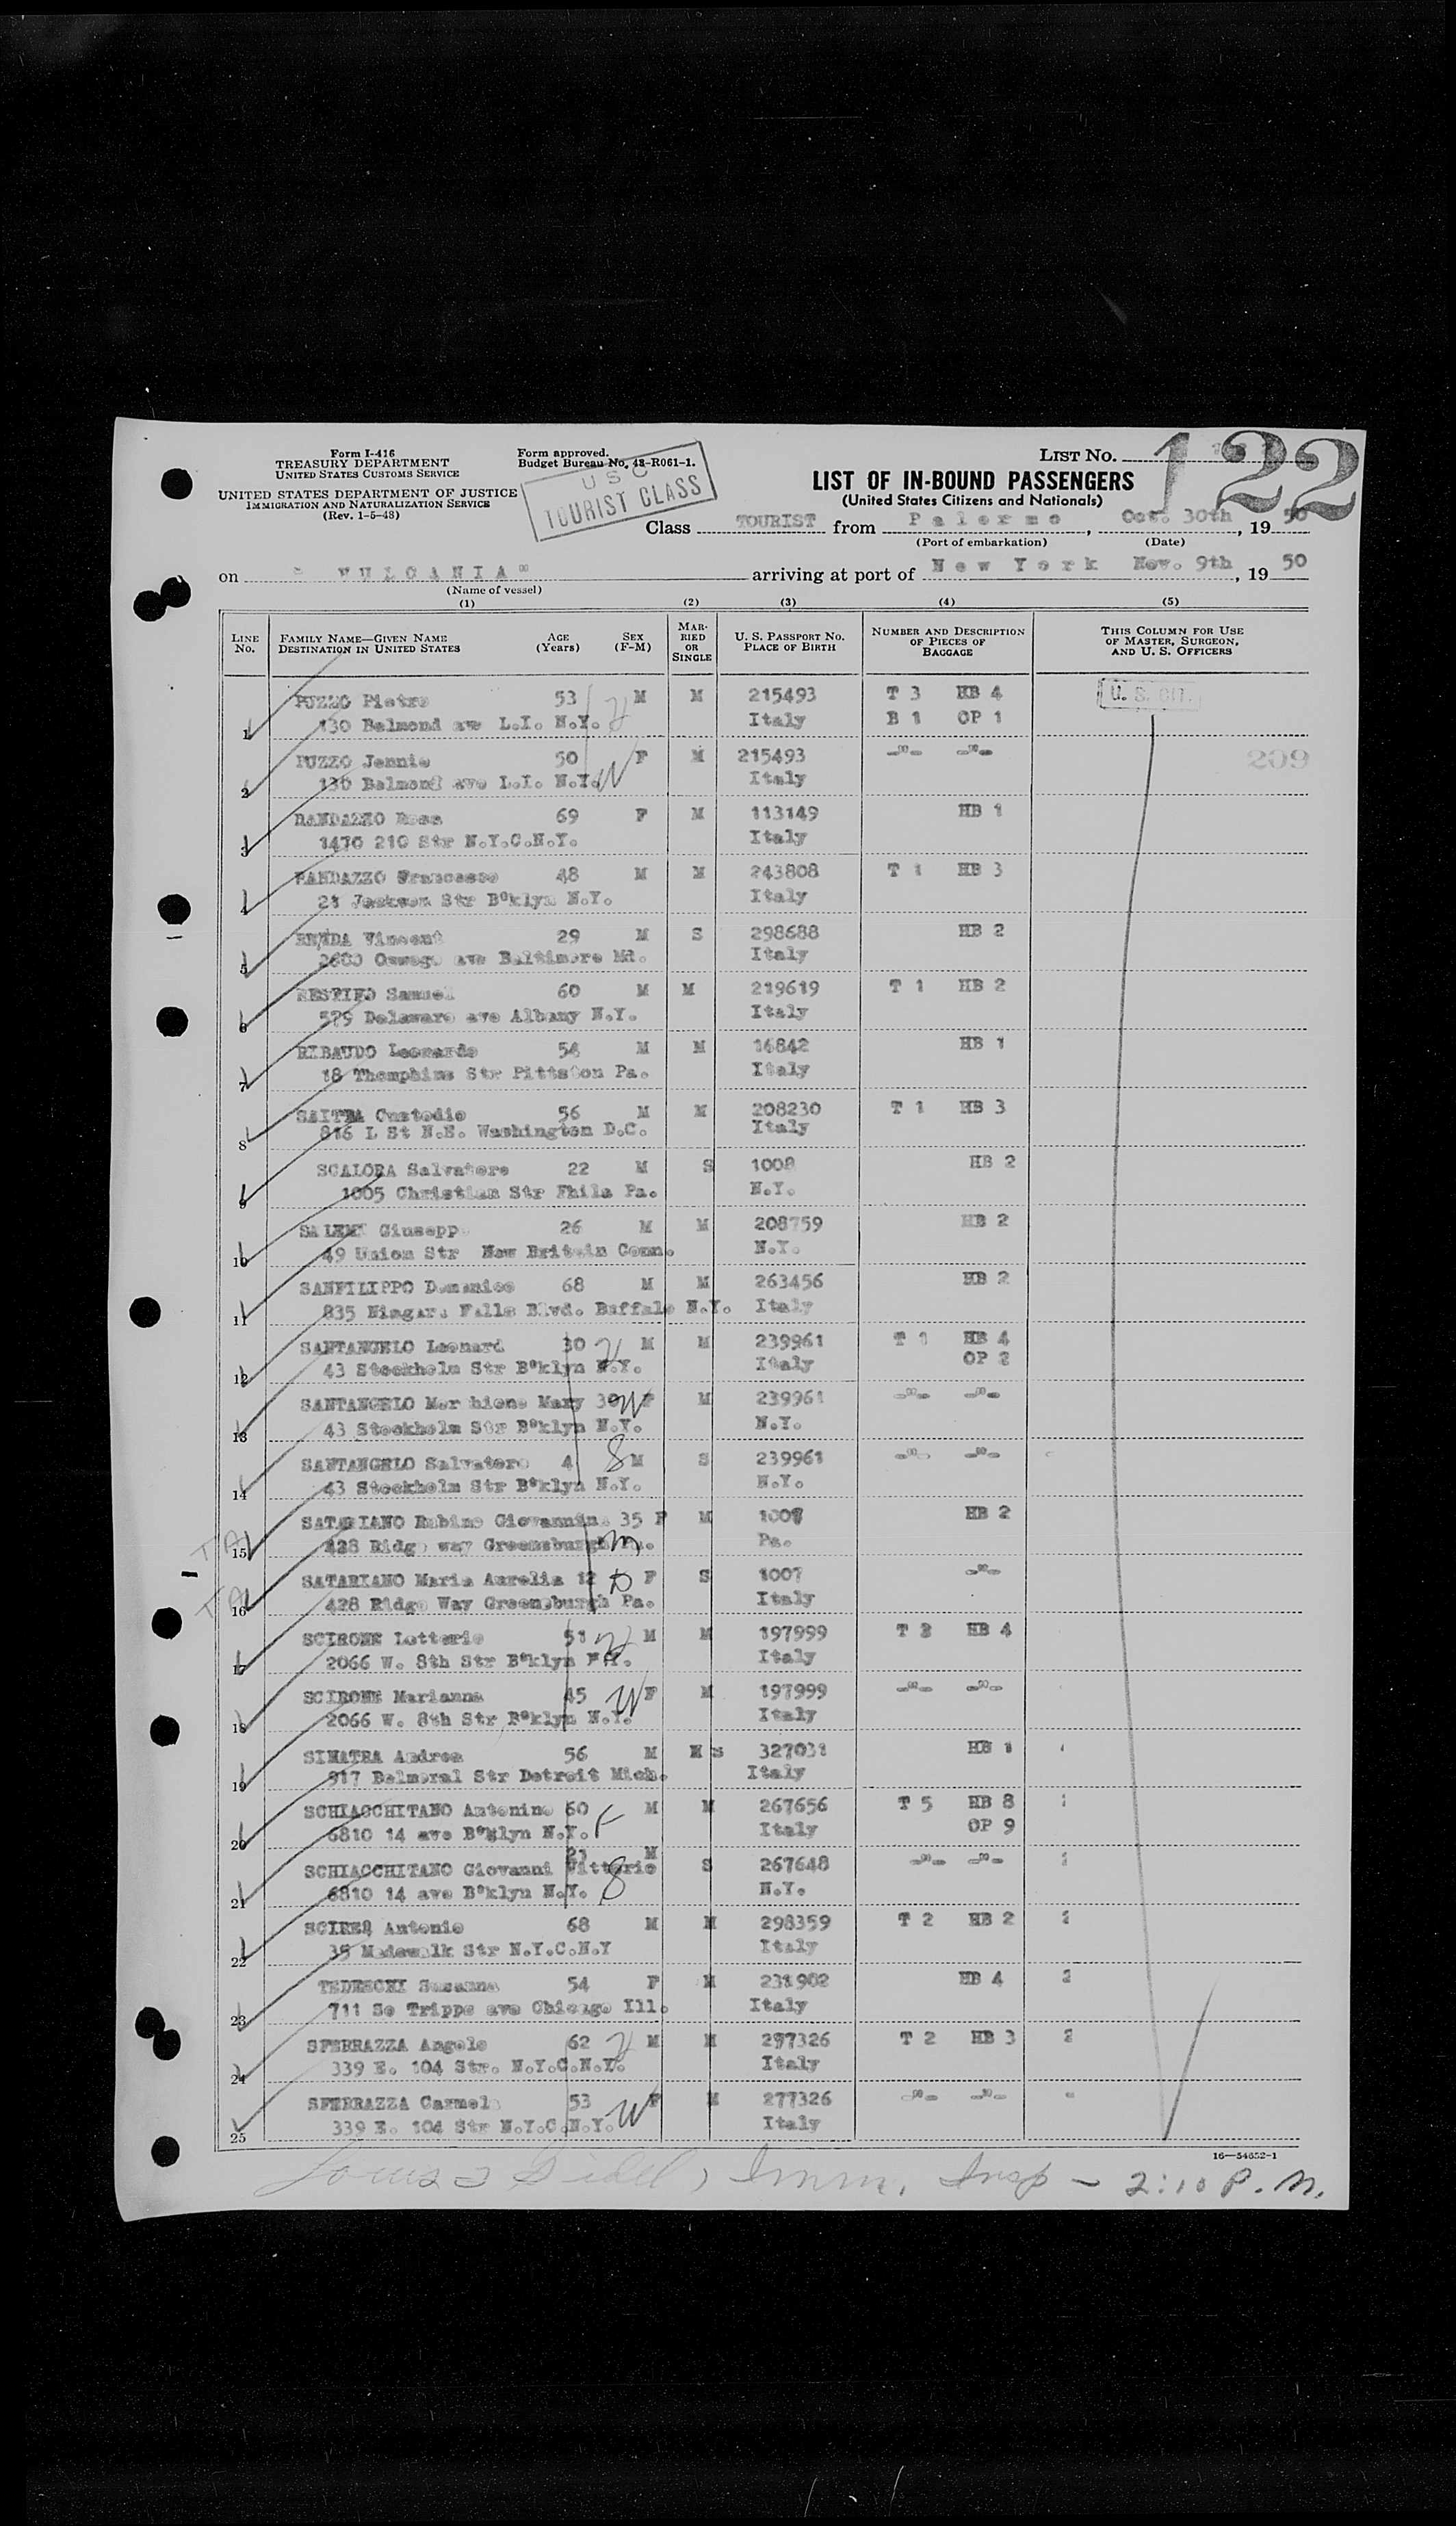 Form I-416
TREASURY DEPARTMENT
UNITED STATES CUSTOMS SERVICE
UNITED STATES DEPARTMENT OF JUSTICE
IMMIGRATION AND NATURALIZATION SERVICE
(Rev. 1-5-48)
Form approved.
Budget Bureau No. 43-R061-1.
U S C
TOURIST CLASS
LIST NO.
122
LIST OF IN-BOUND PASSENGERS
(United States Citizens and Nationals)
Class TOURIST from Palermo, Oct. 30th, 19 50
(Port of embarkation) (Date)
on "VULCANIA" arriving at port of New York Nov. 9th, 19 50
(Name of vessel)
(1) (2) (3) (4) (5)
LINE No. FAMILY NAME—GIVEN NAME DESTINATION IN UNITED STATES AGE (Years) SEX (F-M) MARRIED OR SINGLE U. S. PASSPORT NO. PLACE OF BIRTH NUMBER AND DESCRIPTION OF PIECES OF BAGGAGE THIS COLUMN FOR USE OF MASTER, SURGEON, AND U. S. OFFICERS
PUZZO Pietro 53 M M 215493 T 3 HB 4 U. S. CIT.
1 130 Belmond ave L.I. N.Y. Italy B 1 OP 1
PUZZO Jennie 50 F M 215493 -"- -"- 209
2 130 Belmond ave L.I. N.Y. W Italy
RANDAZZO Rosa 69 F M 113149 HB 1
3 1470 210 Str N.Y.C.N.Y. Italy
RANDAZZO Francesco 48 M M 243808 T 1 HB 3
4 21 Jackson Str B°klyn N.Y. Italy
RENDA Vincent 29 M S 298688 HB 2
5 Oswego ave Baltimore Md. Italy
RESTIFO Samuel 60 M M 219619 T 1 HB 2
6 579 Delaware ave Albany N.Y. Italy
RIBAUDO Leonardo 54 M M 14842 HB 1
7 18 Thomphins Str Pittston Pa. Italy
SAITTA Custodio 56 M M 208230 T 1 HB 3
8 816 L St N.E. Washington D.C. Italy
SCALORA Salvatore 22 M S 1008 HB 2
9 1005 Christian Str Phila Pa. N.Y.
SALEMI Giuseppe 26 M M 208759 HB 2
10 49 Union Str New Britain Conn. N.Y.
SANFILIPPO Domenico 68 M M 263456 HB 2
11 835 Niagara Falls Blvd. Buffalo N.Y. Italy
SANTANGELO Leonard 30 M M 239961 T 1 HB 4
12 43 Stockholm Str B°klyn N.Y. Italy OP 2
SANTANGELO Mary 30 W F M 239961 -"- -"-
13 43 Stockholm Str B°klyn N.Y. N.Y.
SANTANGELO Salvatore 4 8 M S 239961 -"- -"-
14 43 Stockholm Str B°klyn N.Y. N.Y.
SATARIANO Rubino Giovannina 35 F M 1007 HB 2
15 428 Ridge way Greensburgh Pa. m Pa.
SATARIANO Maria Aurelia 12 D F S 1007 -"-
16 428 Ridge Way Greensburgh Pa. Italy
SCIRONE Lotterio 51 M M 197999 T 3 HB 4
17 2066 W. 8th Str B°klyn Italy
SCIRONE Marianna 45 W F M 197999 -"- -"-
18 2066 W. 8th Str B°klyn N.Y. Italy
SINATRA Andrea 56 M M S 327031 HB 1
19 917 Balmoral Str Detroit Mich. Italy
SCHIACCHITANO Antonino 60 F M M 267656 T 5 HB 8
20 6810 14 ave B°klyn N.Y. Italy OP 9
23 M
SCHIACCHITANO Giovanni Vittorio S 267648 -"- -"-
21 6810 14 ave B°klyn N.Y. 8 N.Y.
Antonio 68 M M 298359 T 2 HB 2
22 35 Str N.Y.C.N.Y Italy
TEDESCHI Susanna 54 F M 231902 HB 4
23 711 So Tripps ave Chicago Ill. Italy
SFERRAZZA Angelo 62 M M 297326 T 2 HB 3
24 339 E. 104 Str. N.Y.C.N.Y. Italy
SFERRAZZA Carmela 53 W F M 277326 -"- -"-
25 339 E. 104 Str N.Y.C.N.Y. Italy
16—54652-1
Imm. Insp - 2:10 P.M.